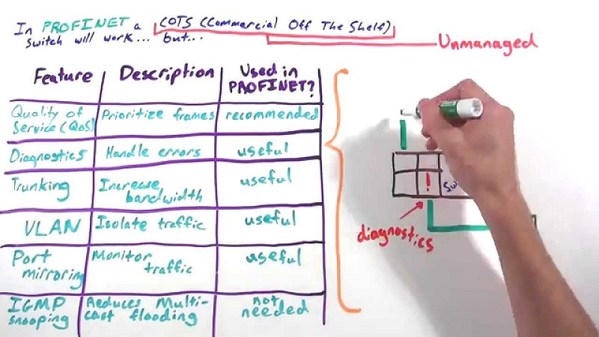 In PROFINET a COTS (Commercial Off The Shelf)
switch will work... but...
Unmanaged
Feature
Description
Used in
PROFINET?
Quality of
Service (QoS)
Prioritize frames
recommended
Diagnostics
Handle errors
useful
Trunking
Increase
bandwidth
useful
VLAN
Isolate traffic
useful
Port
mirroring
Monitor
traffic
useful
IGMP
snooping
Reduces Multi-
cast flooding
not
needed
!
diagnostics